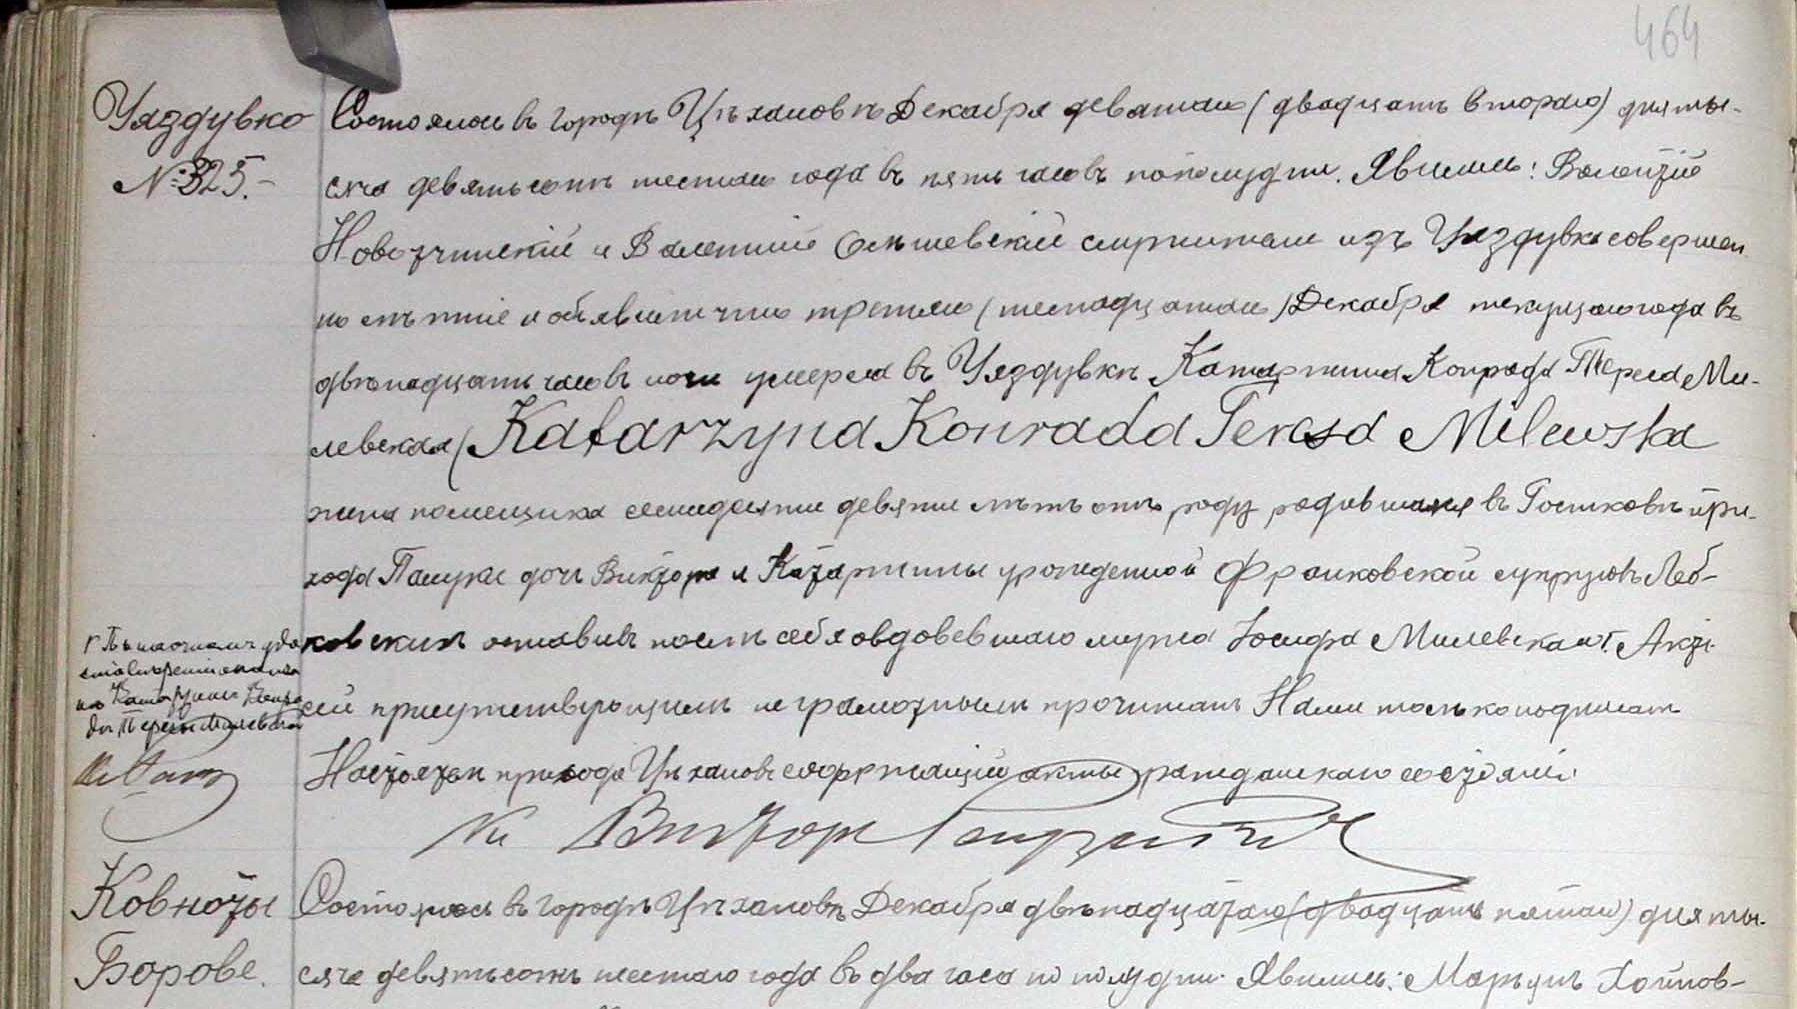 464
Уяздувко
№ 325.-
Состоялось въ городѣ Цѣхановѣ Декабря девятаго (двадцать второго) дня ты-
сяча девятьсотъ шестаго года въ пять часовъ пополудни. Явились: Валентій
и Валентій Ольшевскій служители изъ Уяздувка совершен
но лѣтніе и объявили что третьяго (шестнадцатаго) Декабря текущаго года въ
двѣнадцать часовъ ночи умерла въ Уяздувкѣ Катаржина Конрада Тереса Ми-
левская (Katarzyna Konrada Teresa Milewska
жена помещика семидесяти девяти лѣтъ отъ роду родившаяся въ Гостковѣ при-
хода Палуки дочь Виктора и Катаржины урожденной Франковской супруговъ Леб-
ковскихъ оставивъ послѣ себя овдовевшаго мужа Іосифа Милевскаго Г. Актъ
сей присутствующимъ неграмотнымъ прочитанъ Нами только подписанъ
Настоятель прихода Цѣхановъ содержащій акты гражданскаго состоянія.
Кс Викторъ
Г Въ
Катаржины Конра
ды Тересы Милевской
Ковноты
Борове.
Состоялось въ городѣ Цѣхановѣ Декабря двѣнадцатаго (двадцать пятаго) дня ты-
сяча девятьсотъ шестаго года въ два часа по полудни. Явились: Марьянъ Хойнов-